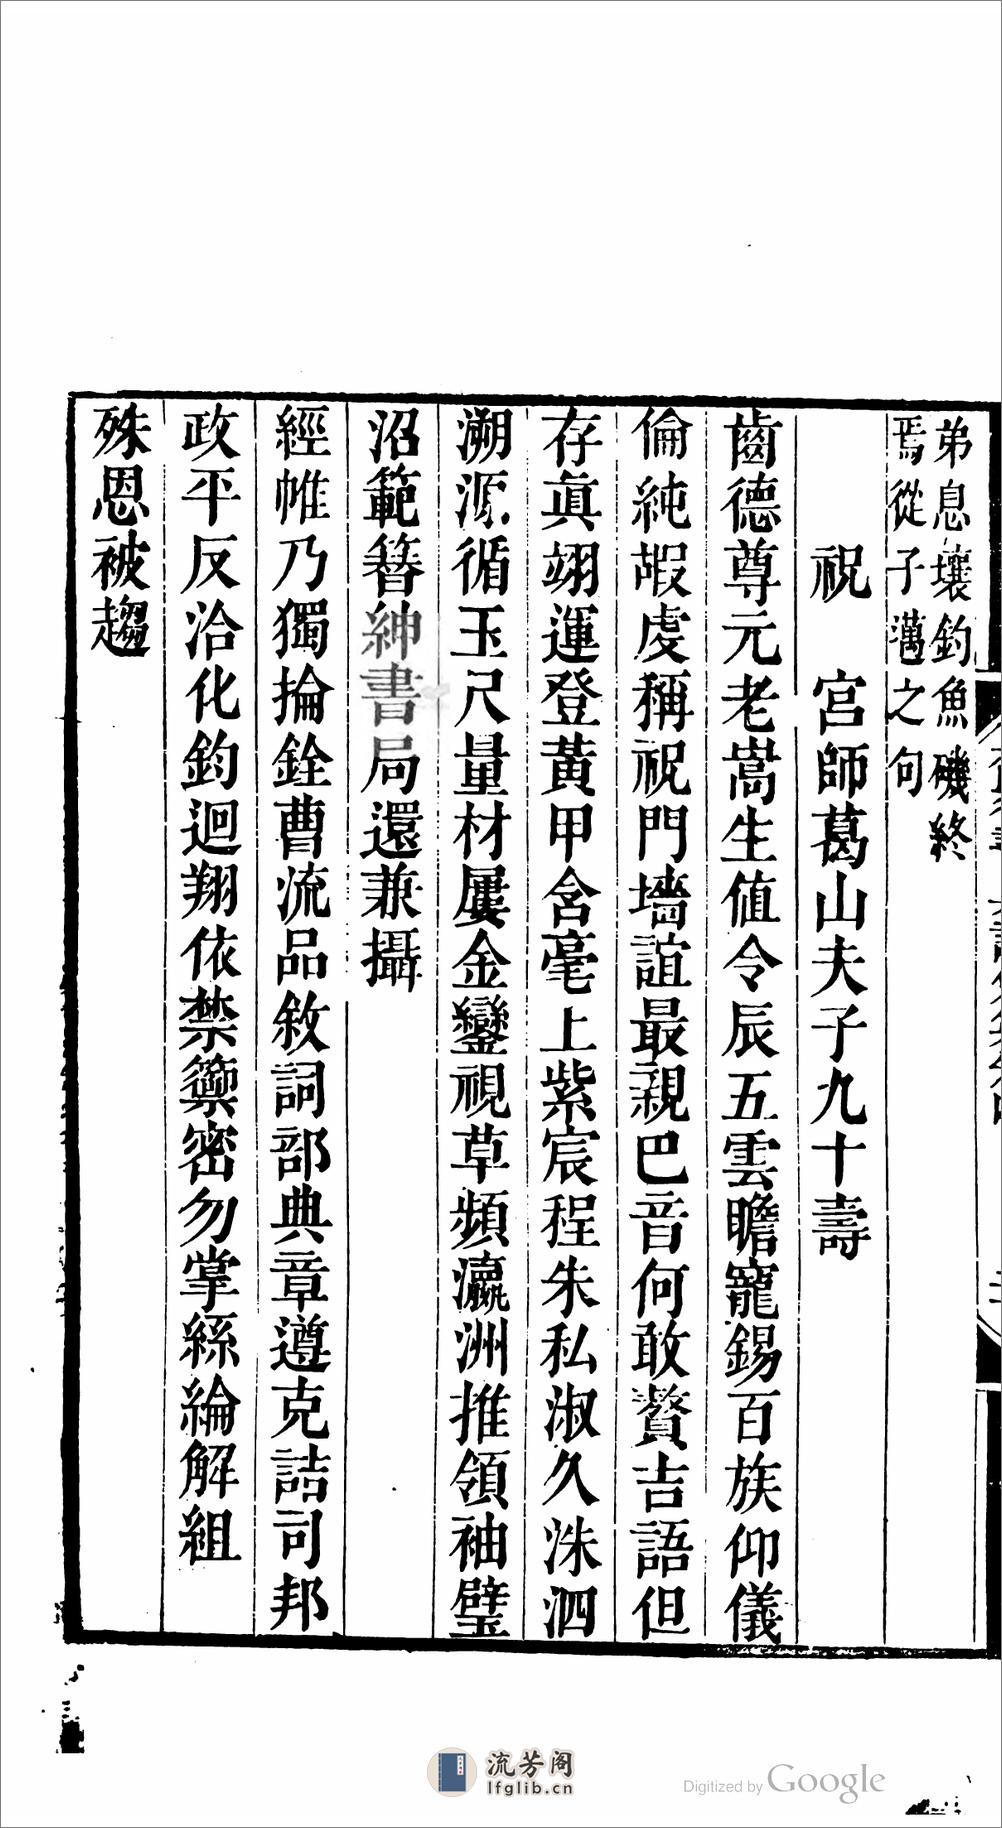 弟息壤釣魚磯終
焉從子邁之句
祝　宮師葛山夫子九十壽
齒德尊元老嵩生值令辰五雲瞻寵錫百族仰儀
倫純嘏虔稱祝門墻誼最親巴音何敢贅吉語但
存眞翊運登黃甲含毫上紫宸程朱私淑久洙泗
溯源循玉尺量材屢金鑾視草頻瀛洲推領袖璧
沼範簪紳書局還兼攝
經帷乃獨掄銓曹流品敘詞部典章遵克詰司邦
政平反洽化鈞迴翔依禁籞密勿掌絲綸解組
殊恩被趨
流芳阁
lfglib.cn
Digitized by Google